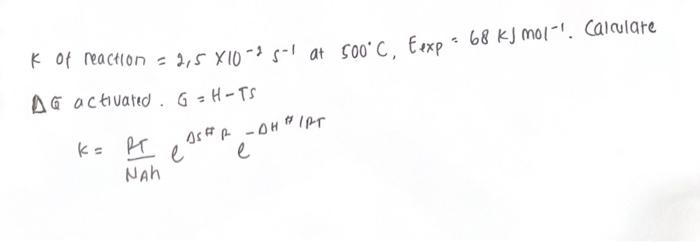 K of reaction = 2,5 X10⁻² s⁻¹ at 500°C, Eexp = 68 KJ mol⁻¹. Calculate
ΔG activated. G = H - TS
K = RT/NAh e^ΔS# R e^-ΔH#/RT